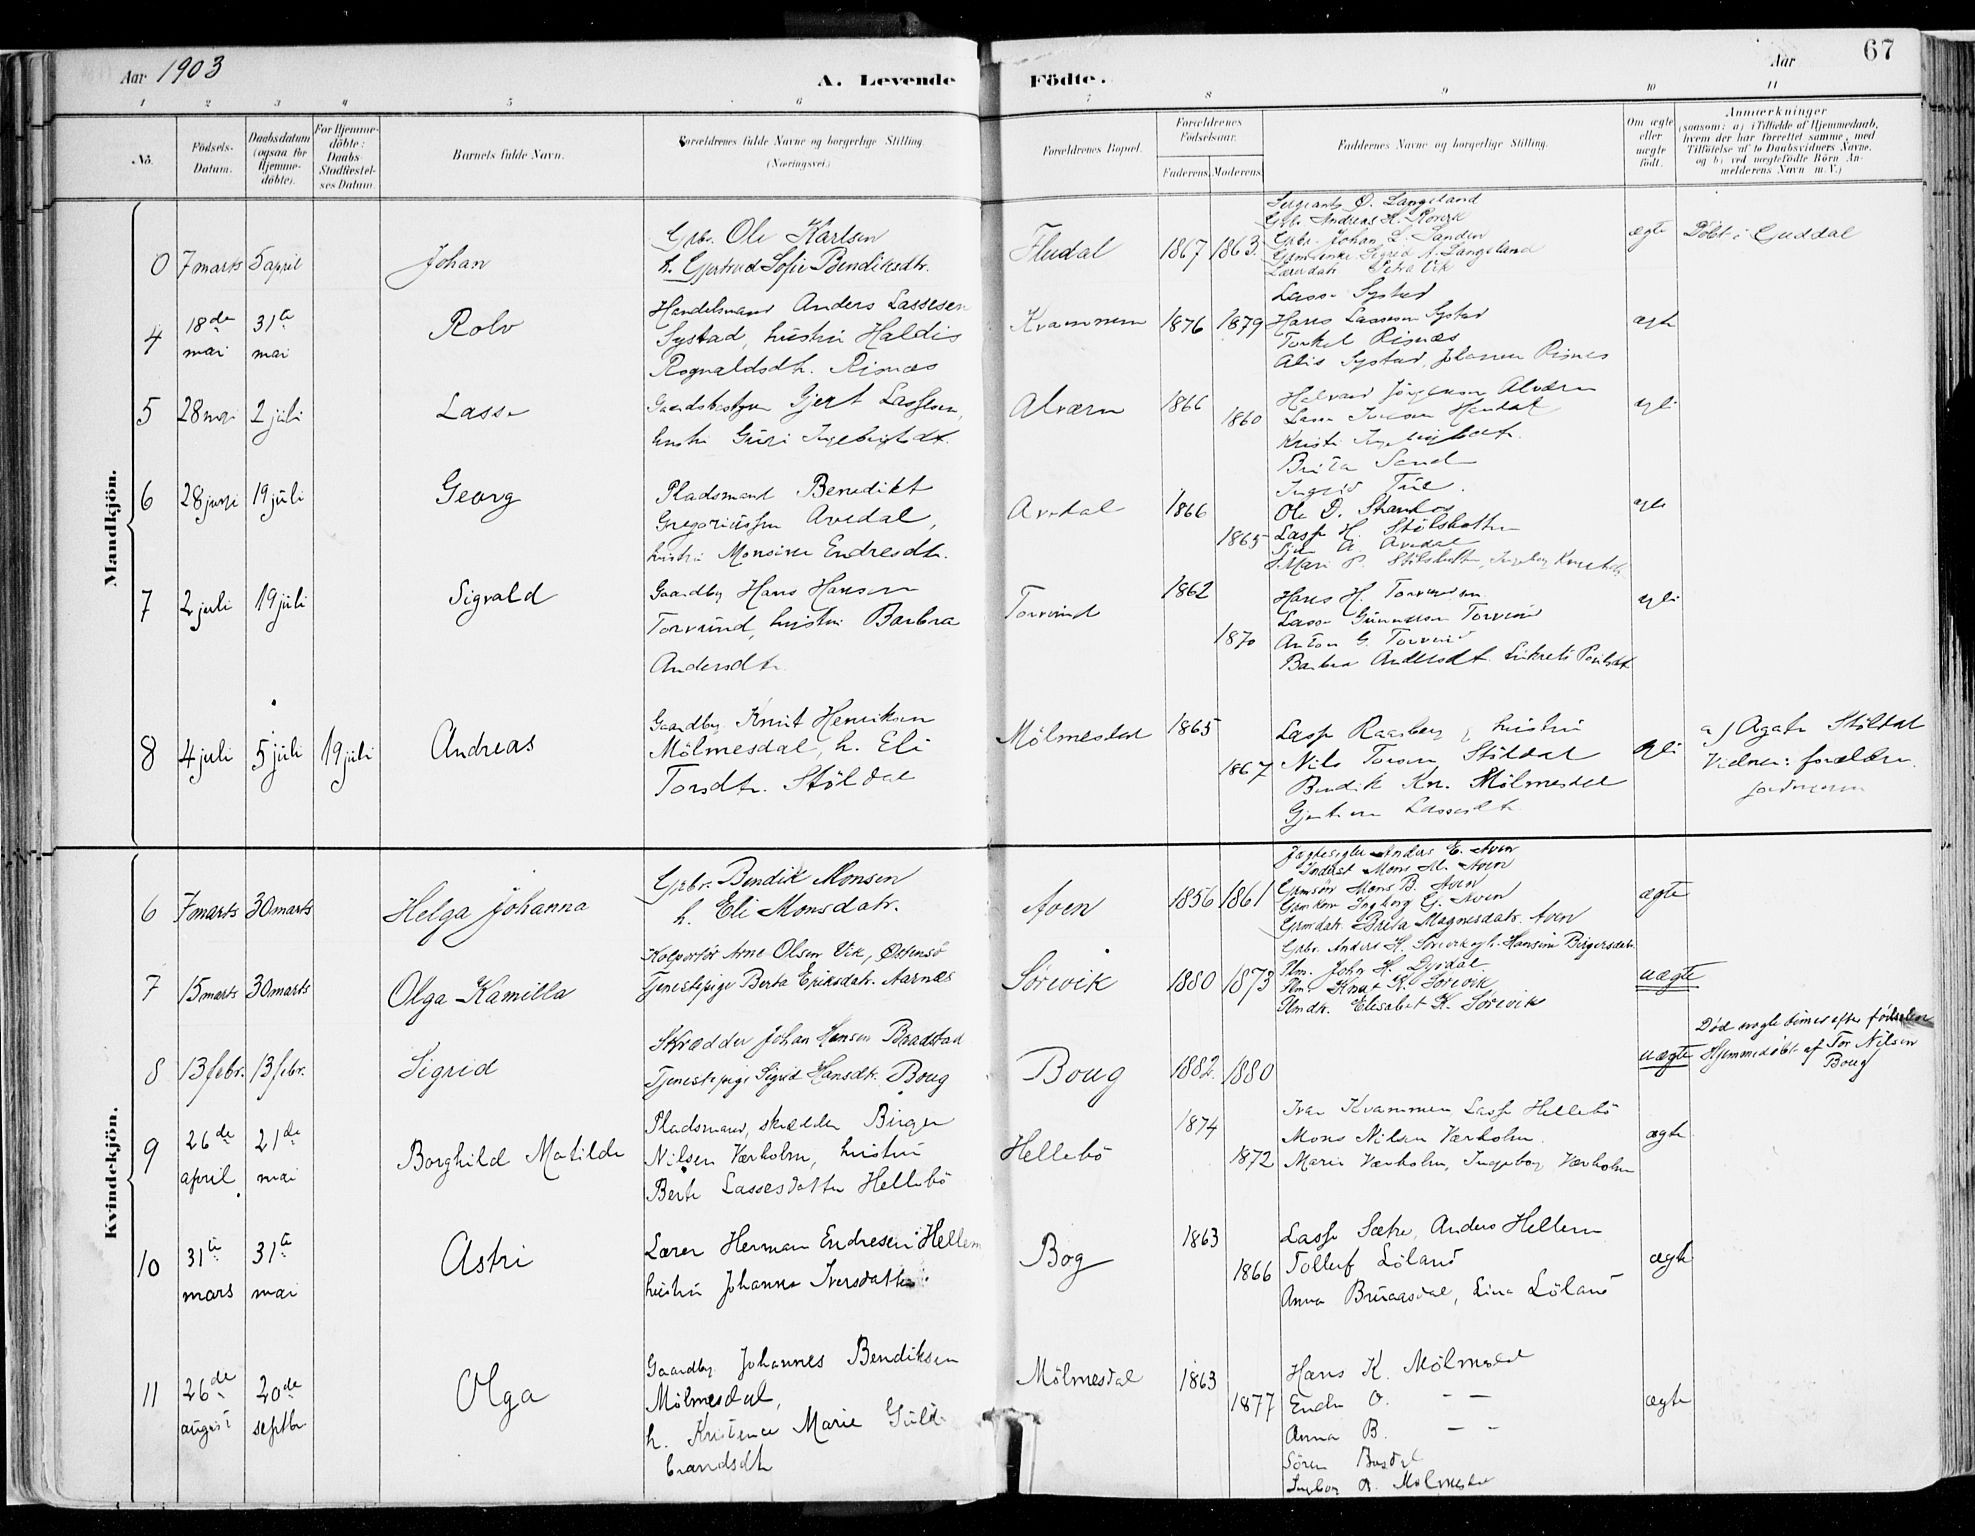 Aar 1903
A. Levende Födte.
Aar
67
1 2 3 4 5 6 7 8 9 10 11
No.
Födsels-Datum.
Daabsdatum (ogsaa for Hjemme-döbte).
For Hjemme-döbte: Daabs Stadfæstel-ses Datum.
Barnets fulde Navn.
Forældrenes fulde Navne og borgerlige Stilling. (Næringsvei.)
Forældrenes Bopæl.
Forældrenes Fødselsaar.
Faderens. Moderens.
Faddernes Navne og borgerlige Stilling.
Om ægte eller uægte født.
Anmærkninger (saasom: a) i Tilfælde af Hjemmedaab, hvem der har forrettet samme, med Tilføielse af to Daabsvidners Navne, og b) ved uægtefødte Børn An-melderens Navn m. V.)
Mandkjön.
0 7 marts 5 april Johan
Gbr. Ole Karlsen
h. Gjertrud Sofie Bendiksdtr.
Fludal 1867 1863
O. Langeland
Andreas
Gbr. Johan L. Sanden
Sigrid A. Langeland
Petra Vik
ægte Döbt i Guddal
4 18de mai 31te mai Rolv
Handelsmand Anders Lassesen
Systad, hustru Haldis
Rognaldsdtr. Risnæs
Kvammen 1876 1879
Lasse Systad
Hans Lassesen Systad
Torkel Risnæs
Alis Systad, Johanne Risnes
ægte
5 28 mai 2 juli Lasse
Gjert Lassesen,
hustru Guri Ingebrigtsdt.
Alværn 1866 1860
Halvard Jörgensen Alværn
Lasse
Brita Sande
Ingrid
ægte
6 28 juni 19 juli Georg
Pladsmand Benedikt
Gregoriussen Avedal,
hustru Monsine Endresdtr.
Avedal 1866 1865
Ole D.
Lasse H. Stölsbotten
A. Avedal
Mari P. Stölsbotten, Ingeborg
ægte
7 2 juli 19 juli Sigvald
Gaardbr. Hans Hansen
Torvund, hustru Barbra
Andersdtr.
Torvund 1862 1870
Hans H. Torvund
Lasse Gunnarsen Torvund
Anton G. Torvund
Barbra Andersdt.
ægte
8 4 juli 5 juli 19 juli Andreas
Gaardbr. Knut Henriksen
Mölmesdal, h. Eli
Torsdtr. Stöldal
Mölmesdal 1865 1867
Lasse Raasberg, hustru
Nils Torsen Stöldal
Bendik Kn. Mölmesdal
Lassesdtr.
ægte
a) Agate Stöldal
Vidner: forældre
jordmoren
Kvindekjön.
6 7 marts 30 marts Helga Johanna
Gbr. Bendik Monsen
h. Eli Monsdatr.
Aven 1856 1861
Anders E. Aven
Inderst Mons M. Aven
Gmsön Mons B. Aven
Ingborg G. Aven
Gmdatr. Brita Magnesdatr. Aven
ægte
7 15 marts 30 marts Olga Kamilla
Kolportör Arne Olsen Vik, Østensö
Tjenestepige Berta Eriksdatr. Aarnæs
Sørevik 1880 1873
Gbr. Anders H. Sørevik og h. Hansine Birgersdatr.
Plm. John H. Dysdal
Plm. Knut K. Sørevik
Plmdtr. Elisabet K. Sørevik
uægte
8 13 febr. 13 febr. Sigrid
Skrædder Johan Hansen Baadstad
Tjenestepige Sigrid Hansdtr. Boug
Boug 1882. 1880
uægte
Död nogle timer efter födselen
Hjemmedöbt af Tor Nilsen
Boug
9 26de april 21de mai Borghild Matilde
Pladsmand, skrædder Birger
Nilsen Værholm, hustru
Berte Lassesdatter Hellebö
Hellebö 1874 1872
Ivar Kvammen, Lasse Hellebö
Mons Nilsen Værholm.
Marie Værholm, Ingeborg Værholm
ægte
10 31te mars 31te mai Astri
Lærer Herman Endresen Hellem
hustru Johanne Iversdatter
Bog 1863 1866
Lasse Sætre, Anders Hellem
Tollef Löland
Anna Bruaasdal, Lina Löland
ægte
11 26de august 20de septbr Olga
Gaardbr. Johannes Bendiksen
Mölmesdal,
h. Kristence Marie Guld-
brandsdtr
Mölmesdal 1863 1877
Hans K. Mölmesdal
Endre O. — —
Anna B. — —
Sören
Ingborg B. Mölmesdal
ægte